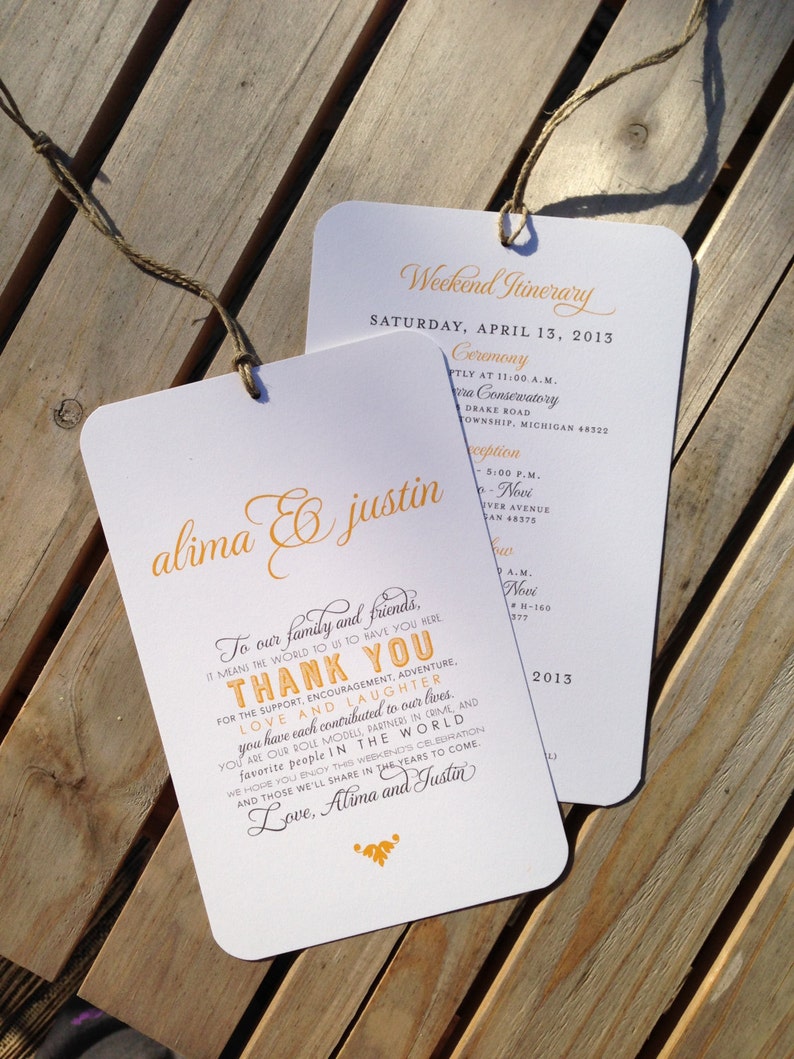 alima & justin
To our family and friends,
IT MEANS THE WORLD TO US TO HAVE YOU HERE.
THANK YOU
FOR THE SUPPORT, ENCOURAGEMENT, ADVENTURE,
LOVE AND LAUGHTER
you have each contributed to our lives.
YOU ARE OUR ROLE MODELS, PARTNERS IN CRIME, AND
favorite people IN THE WORLD
WE HOPE YOU ENJOY THIS WEEKEND'S CELEBRATION
AND THOSE WE'LL SHARE IN THE YEARS TO COME.
Love, Alima and Justin
Weekend Itinerary
SATURDAY, APRIL 13, 2013
Ceremony
AT 11:00 A.M.
Conservatory
DRAKE ROAD
TOWNSHIP, MICHIGAN 48322
- 5:00 P.M.
- Novi
AVENUE
48375
Novi
# H-160
2013